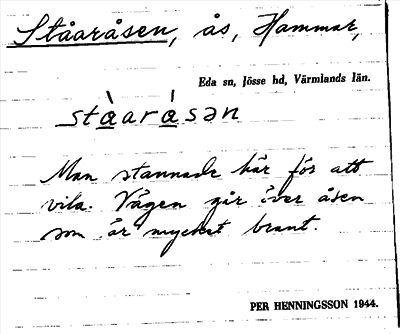 Ståaråsen, ås, Hammar,
Eda sn, Jösse hd, Värmlands län.
stàarásən
Man stannade här för att
vila. Vägen går över åsen
som är mycket brant.
PER HENNINGSSON 1944.